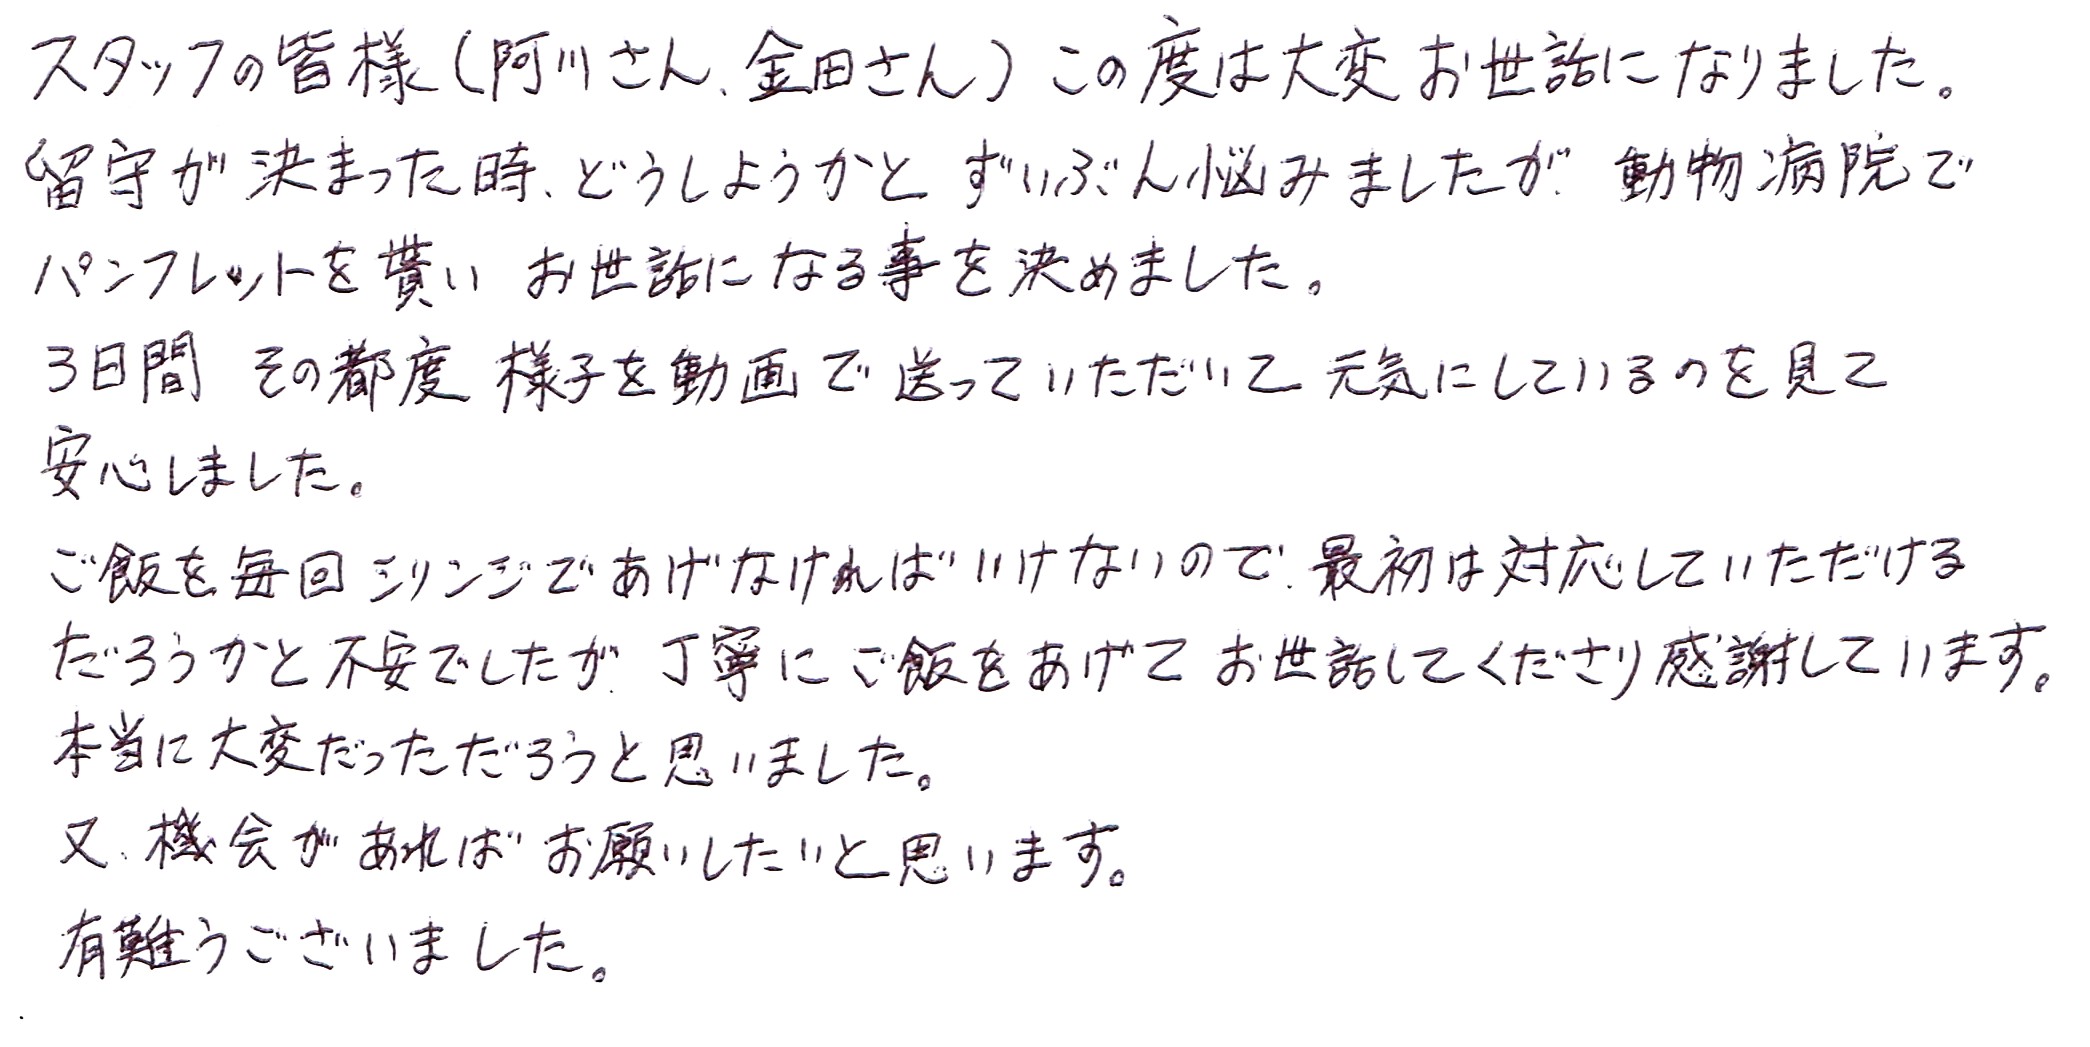 スタッフの皆様(阿川さん、金田さん)この度は大変お世話になりました。
留守が決まった時、どうしようかとずいぶん悩みましたが、動物病院で
パンフレットを貰いお世話になる事を決めました。
3日間 その都度 様子を動画で送っていただいて元気にしているのを見て
安心しました。
ご飯を毎回シリンジであげなければいけないので、最初は対応していただける
だろうかと不安でしたが、丁寧にご飯をあげてお世話してくださり感謝しています。
本当に大変だっただろうと思いました。
又、機会があればお願いしたいと思います。
有難うございました。